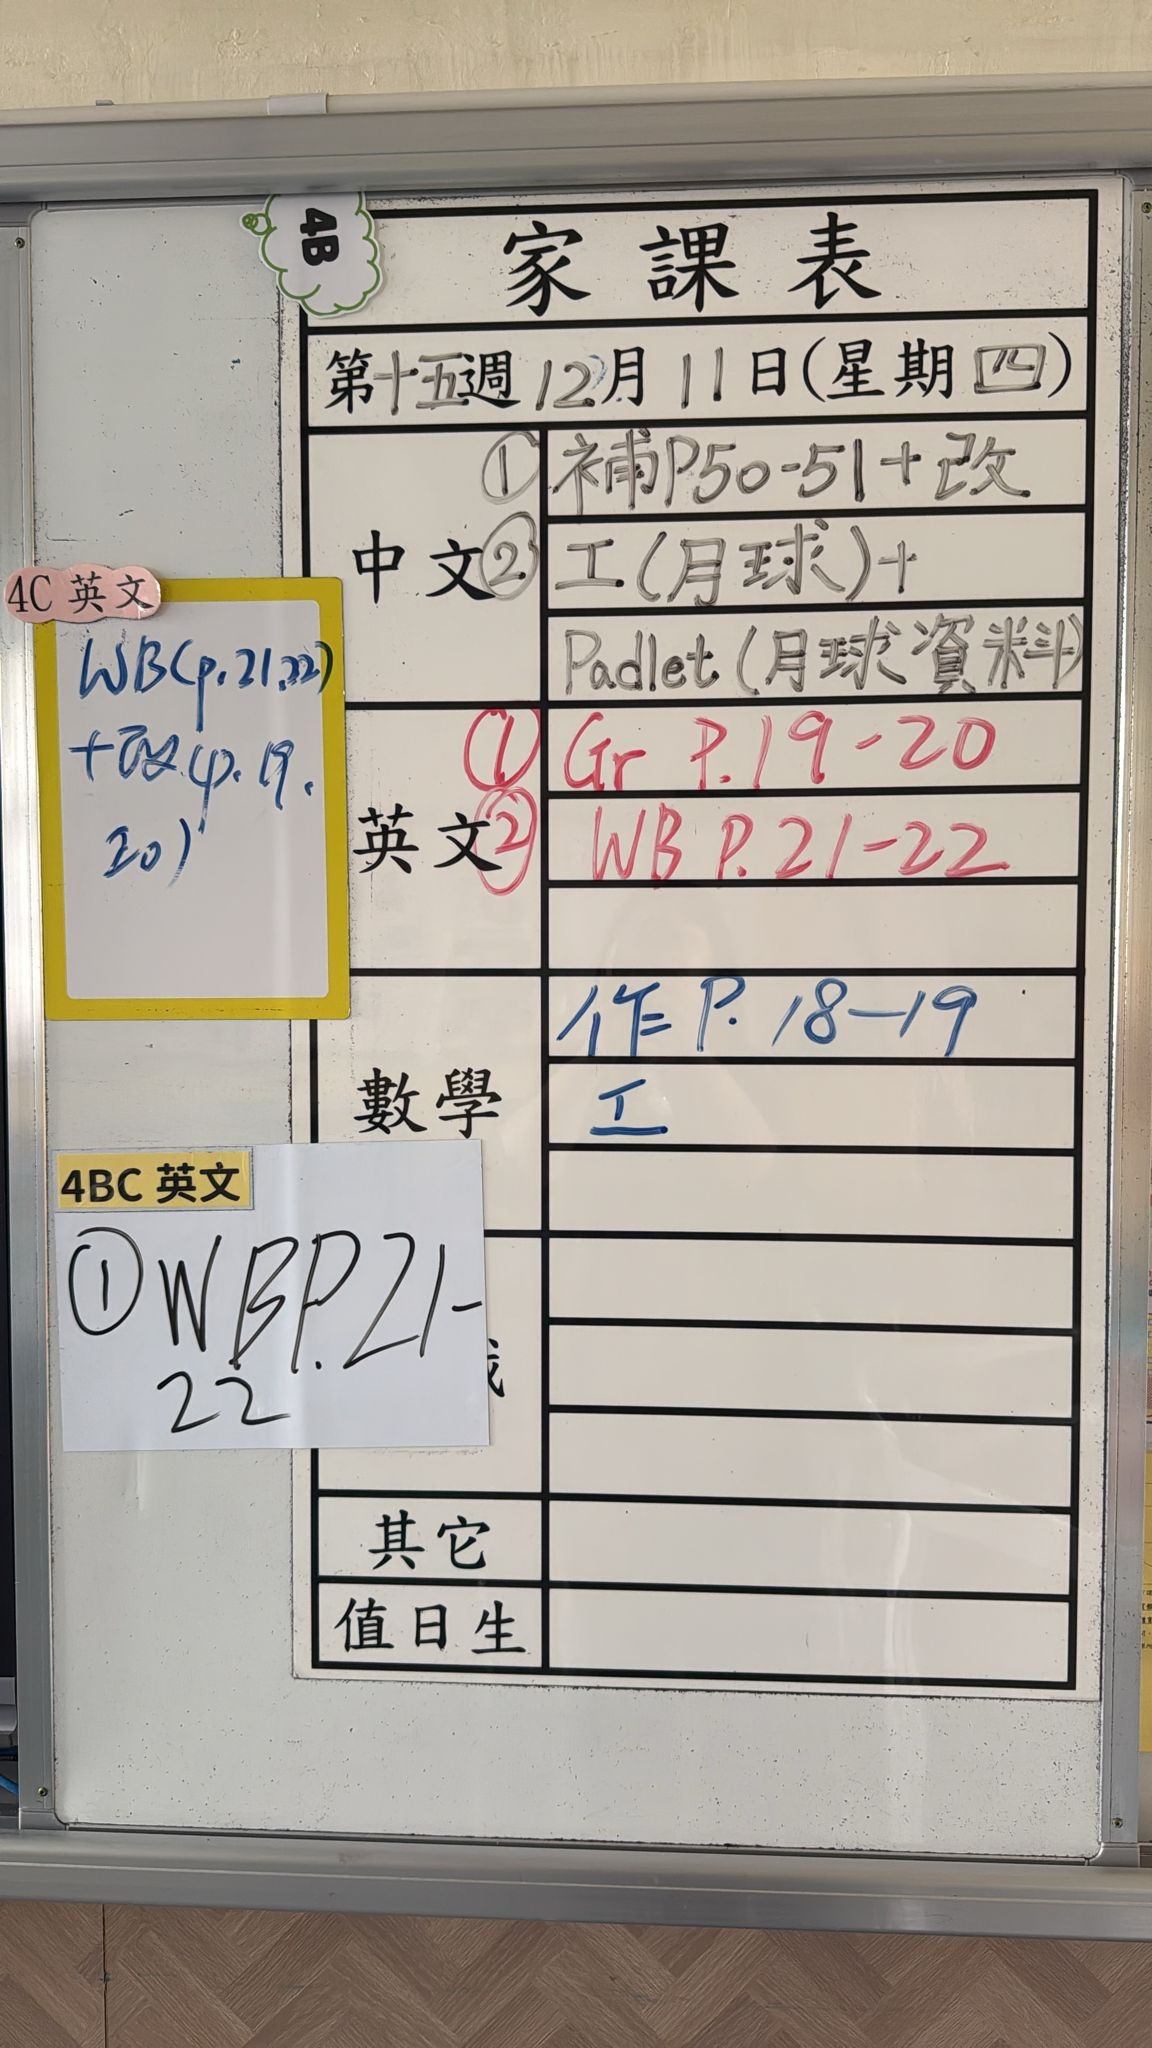 4B
家課表
第十五週12月11日(星期四)
中文
①補P50-51+改
②工(月球)+
Padlet(月球資料)
英文
①Gr P.19-20
②WB P.21-22
數學
作P.18-19
工
其它
值日生
4C 英文
WB(p.21,22)
+改(p.19.
20)
4BC 英文
①WBP.21-
22